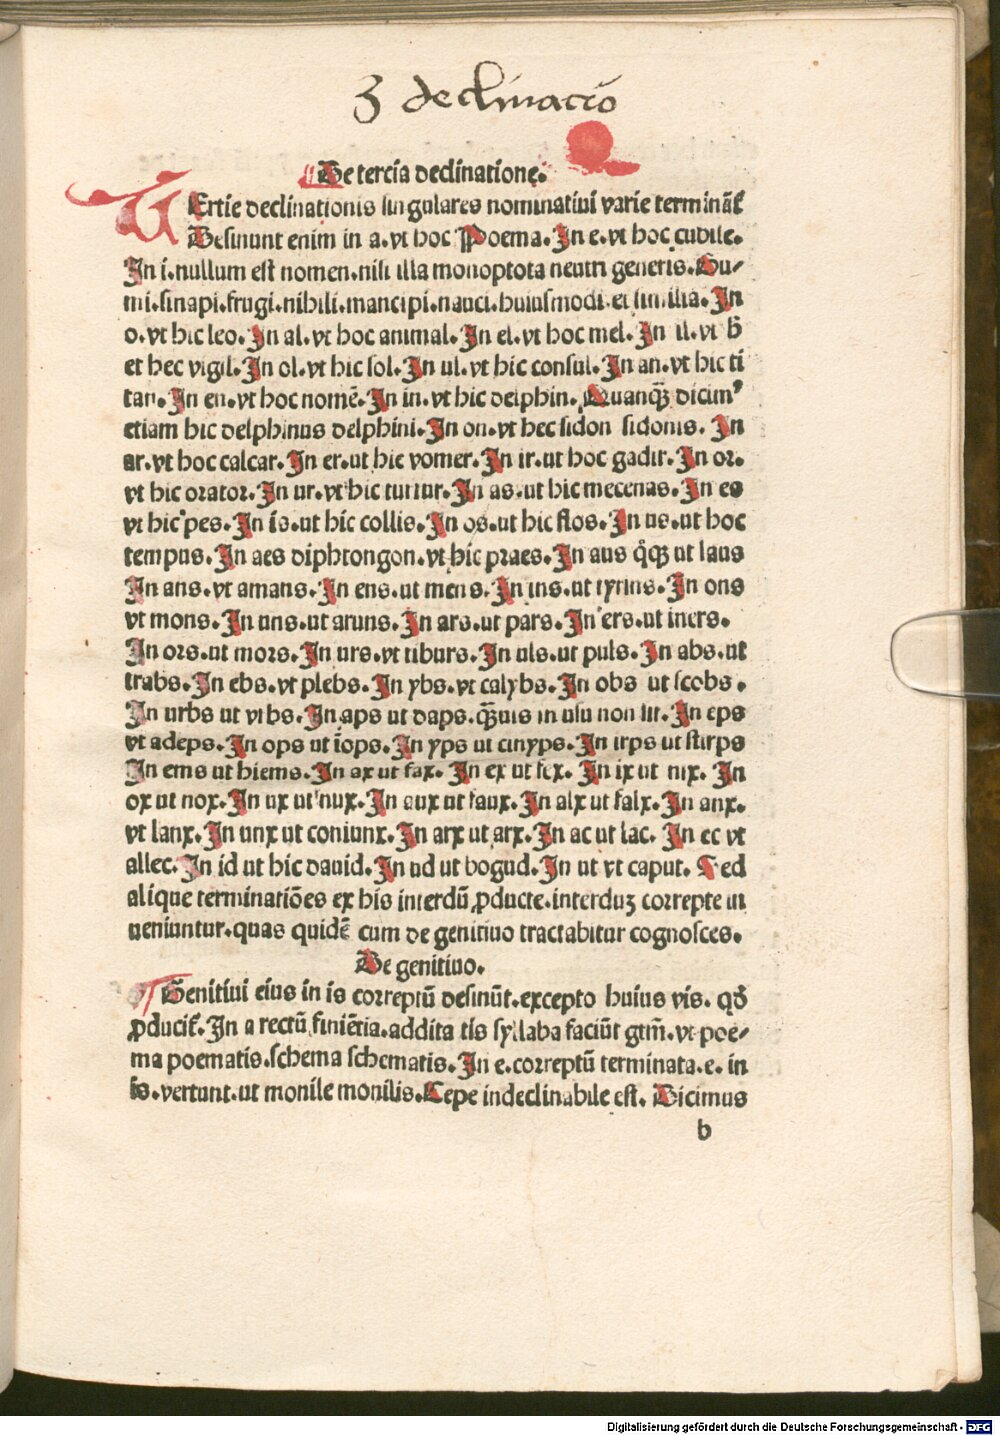 3 declinacio
De tercia declinatione.
TErtie declinationis singulares nominatiui varie termināt
Desinunt enim in a.vt hoc Poema.In e.vt hoc cubile.
In i.nullum est nomen.nisi illa monoptota neutri generis.Gu/
mi.sinapi.frugi.nihili.mancipi.nauci.huiusmodi et similia.In
o.vt hic leo.In al.vt hoc animal.In el.vt hoc mel.In il.vt h̄
et hec vigil.In ol.vt hic sol.In ul.vt hic consul.In an.vt hic ti
tan.In en.vt hoc nomē.In in.vt hic delphin.Quanq̄ dicun᾿
etiam hic delphinus delphini.In on.vt hec sidon sidonis. In
ar.vt hoc calcar.In er.ut hic vomer.In ir.ut hoc gadir.In or.
vt hic orator.In ur.vt hic turtur.In as.ut hic mecenas.In es
vt hic pes.In is.ut hic collis.In os.ut hic flos.In us.ut hoc
tempus.In aes diphtongon.vt hic praes.In aus q̊q̄ ut laus
In ans.vt amans.In ens.ut mens.In ins.ut tyrins.In ons
vt mons.In uns.ut aruns.In ars.ut pars.In ers.ut iners.
In ors.ut mors.In urs.vt tiburs.In uls.ut puls.In abs.ut
trabs.In ebs.vt plebs.In ybs.vt calybs.In obs ut scobs.
In urbs ut vrbs.In aps ut daps.q̄uis in usu non sit.In eps
vt adeps.In ops ut īops.In yps ut cinyps.In irps ut stirps
In ems ut hiems.In ax ut fax. In ex ut fex. In ix ut nix. In
ox ut nox.In ux ut nux.In aux ut faux.In alx ut falx.In anx.
vt lanx.In unx ut coniunx.In arx ut arx.In ac ut lac. In ec vt
allec.In id ut hic dauid.In ud ut bogud.In ut vt caput. Sed
alique terminatiōes ex his interdū ꝓducte.interduꝫ correpte in
ueniuntur.quas quidē cum de genitiuo tractabitur cognosces.
De genitiuo.
Genitiui eius in is correptū desinūt.excepto huius vis. qđ
ꝓducit᾿.In a rectū finiētia.addita tis syllaba faciūt gtm̄.vt poe/
ma poematis.schema schematis.In e.correptū terminata.e. in
is.vertunt.ut monile monilis.Cepe indeclinabile est. Dicimus
b
Digitalisierung gefördert durch die Deutsche Forschungsgemeinschaft - DFG